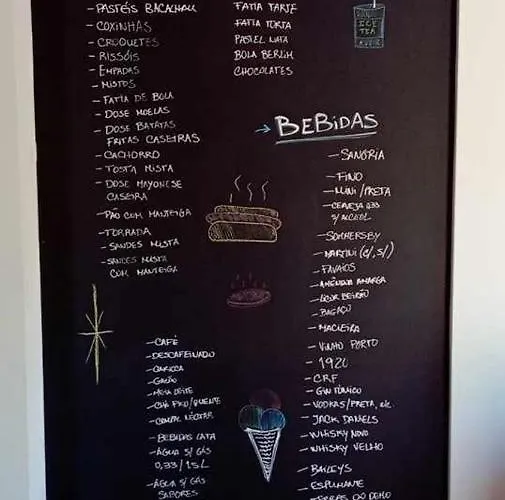 - PASTÉIS BACALHAU
- COXINHAS
- CROQUETES
- RISSÓIS
- EMPADAS
- MISTOS
- FATIA DE BOLA
- DOSE MOELAS
- DOSE BATATAS
FRITAS CASEIRAS
- CACHORRO
- TOSTA MISTA
- DOSE MAYONESE
CASEIRA
- PÃO COM MANTEIGA
- TORRADA
- SANDES MISTA
- SANDES MISTA
COM MANTEIGA
FATIA TARTE
FATIA TORTA
PASTEL NATA
BOLA BERLIM
CHOCOLATES
ICE
TEA
→ BEBIDAS
- SANGRIA
- FINO
- MINI/PRETA
- CERVEJA 0.33
S/ ALCOOL
- SOMMERSBY
- MARTINI (C/, S/)
- FAVAIOS
- AMÊNDOA AMARGA
- LICOR BEIRÃO
- BAGAÇO
- MACIEIRA
- VINHO PORTO
- 1920
- CRF
- GIN TÓNICO
- VODKAS/PRETA, etc.
- JACK DANIELS
- WHISKY NOVO
- WHISKY VELHO
- BAILEYS
- ESPUMANTE
- CAFÉ
- DESCAFEINADO
- CARIOCA
- GALÃO
- MEIA LEITE
- CHÁ FRIO/QUENTE
- COMPAL NÉCTAR
- BEBIDAS LATA
- ÁGUA S/ GÁS
0,33 / 1,5 L
- ÁGUA S/ GÁS
SABORES